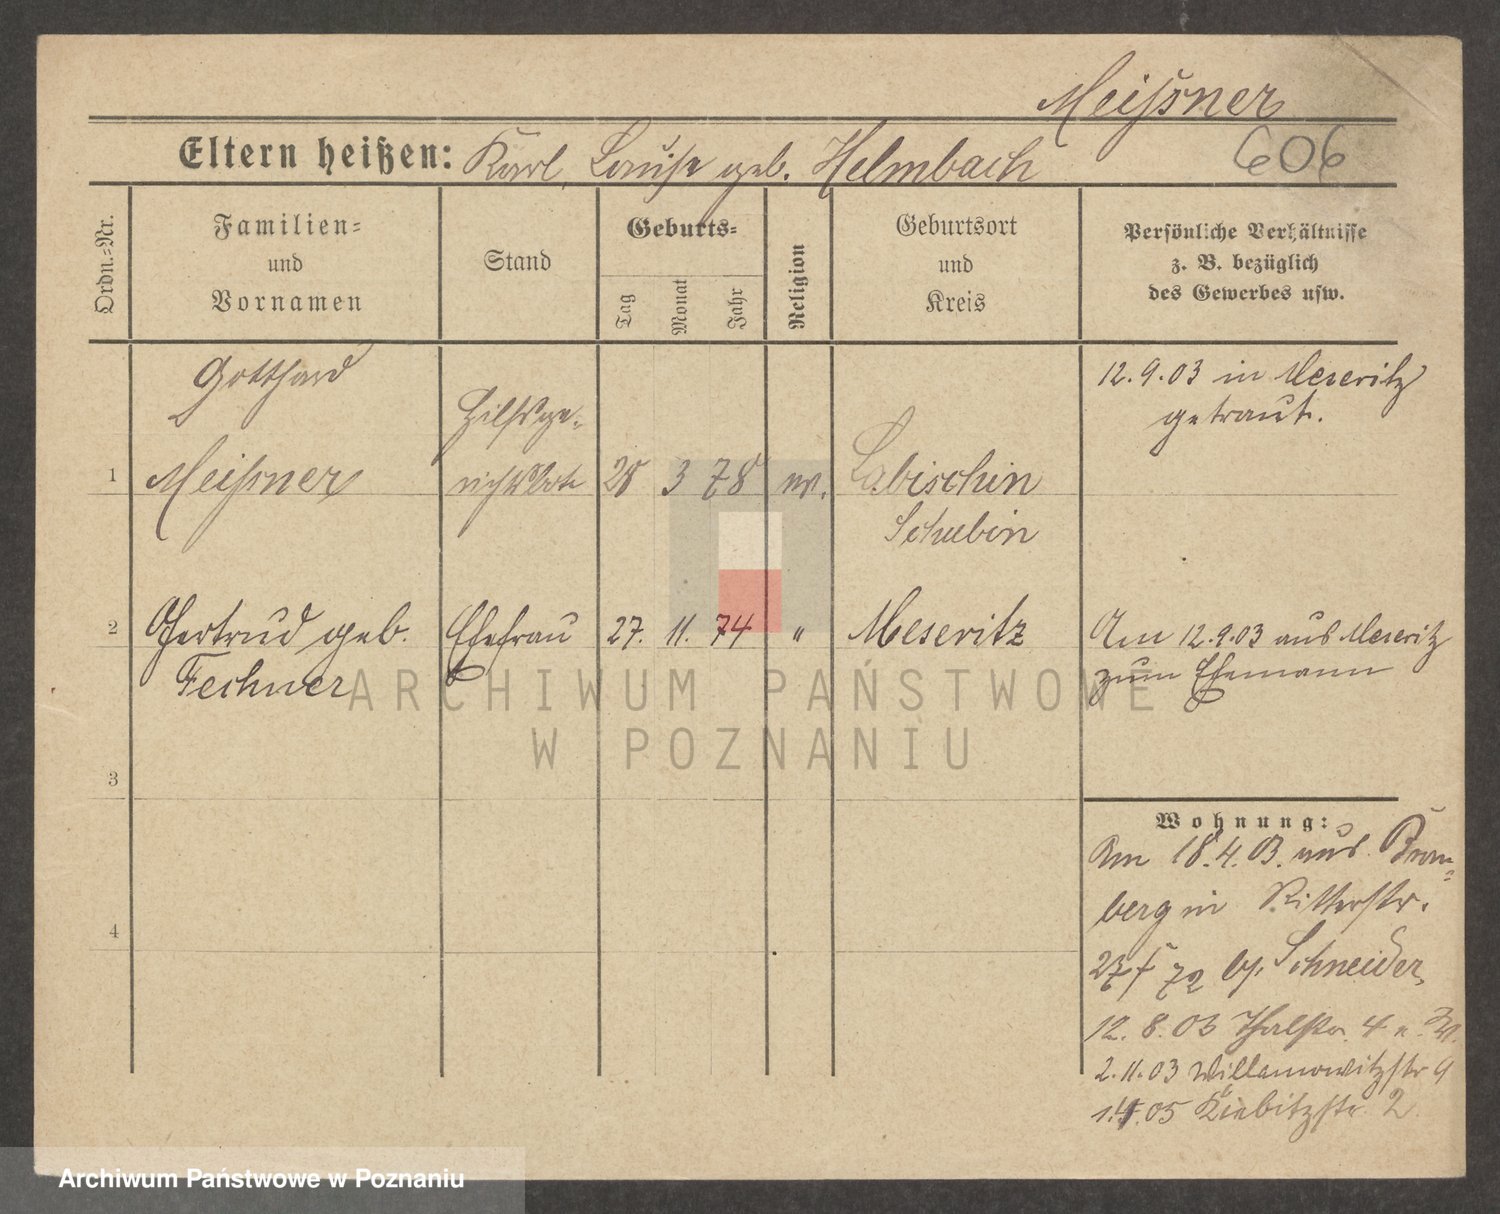 Meißner
Eltern heißen: Karl, Louise geb. Helmbach
606
Ordn.=Nr.
Familien=
und
Vornamen
Stand
Geburts=
Tag
Monat
Jahr
Religion
Geburtsort
und
Kreis
Persönliche Verhältnisse
z. B. bezüglich
des Gewerbes usw.
Gotthard
Hilfsge-
12.9.03 in Meseritz
getraut.
1 Meißner richtsbote 28 3 78 ev. Labischin
Schubin
2 Gertrud geb. Ehefrau 27. 11. 74 " Meseritz
Fechner
Am 12.9.03 aus Meseritz
zum Ehemann
3
4
Wohnung:
Am 18.4.03. aus Brom-
berg in Ritterstr.
27/ 72 by. Schneider
12. 8. 03 Thalstr. 4
2.11.03 Willamowitzstr 9
05 Kiebitzstr 2
ARCHIWUM PAŃSTWOWE
W POZNANIU
Archiwum Państwowe w Poznaniu